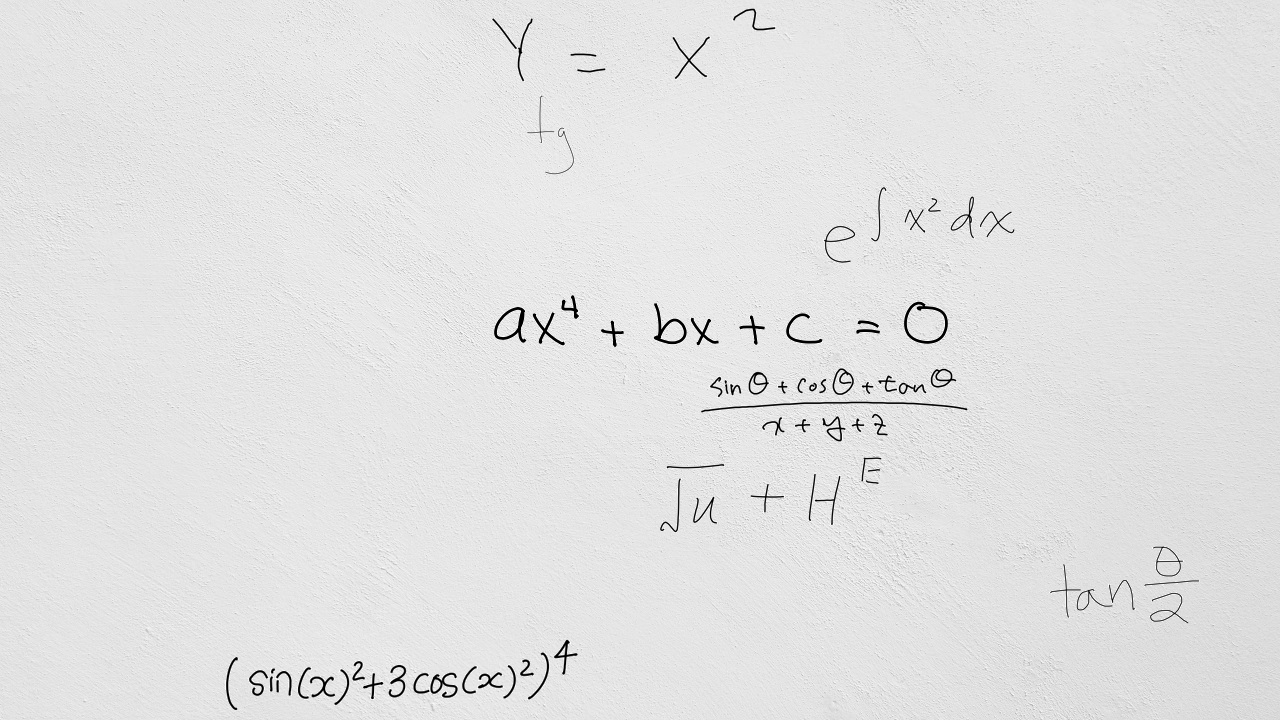 Y = x²
tg
e^∫x²dx
ax⁴ + bx + c = 0
(sinθ + cosθ + tanθ)/(x + y + z)
√u + H^E
tan θ/2
(sin(x)²+3cos(x)²)⁴